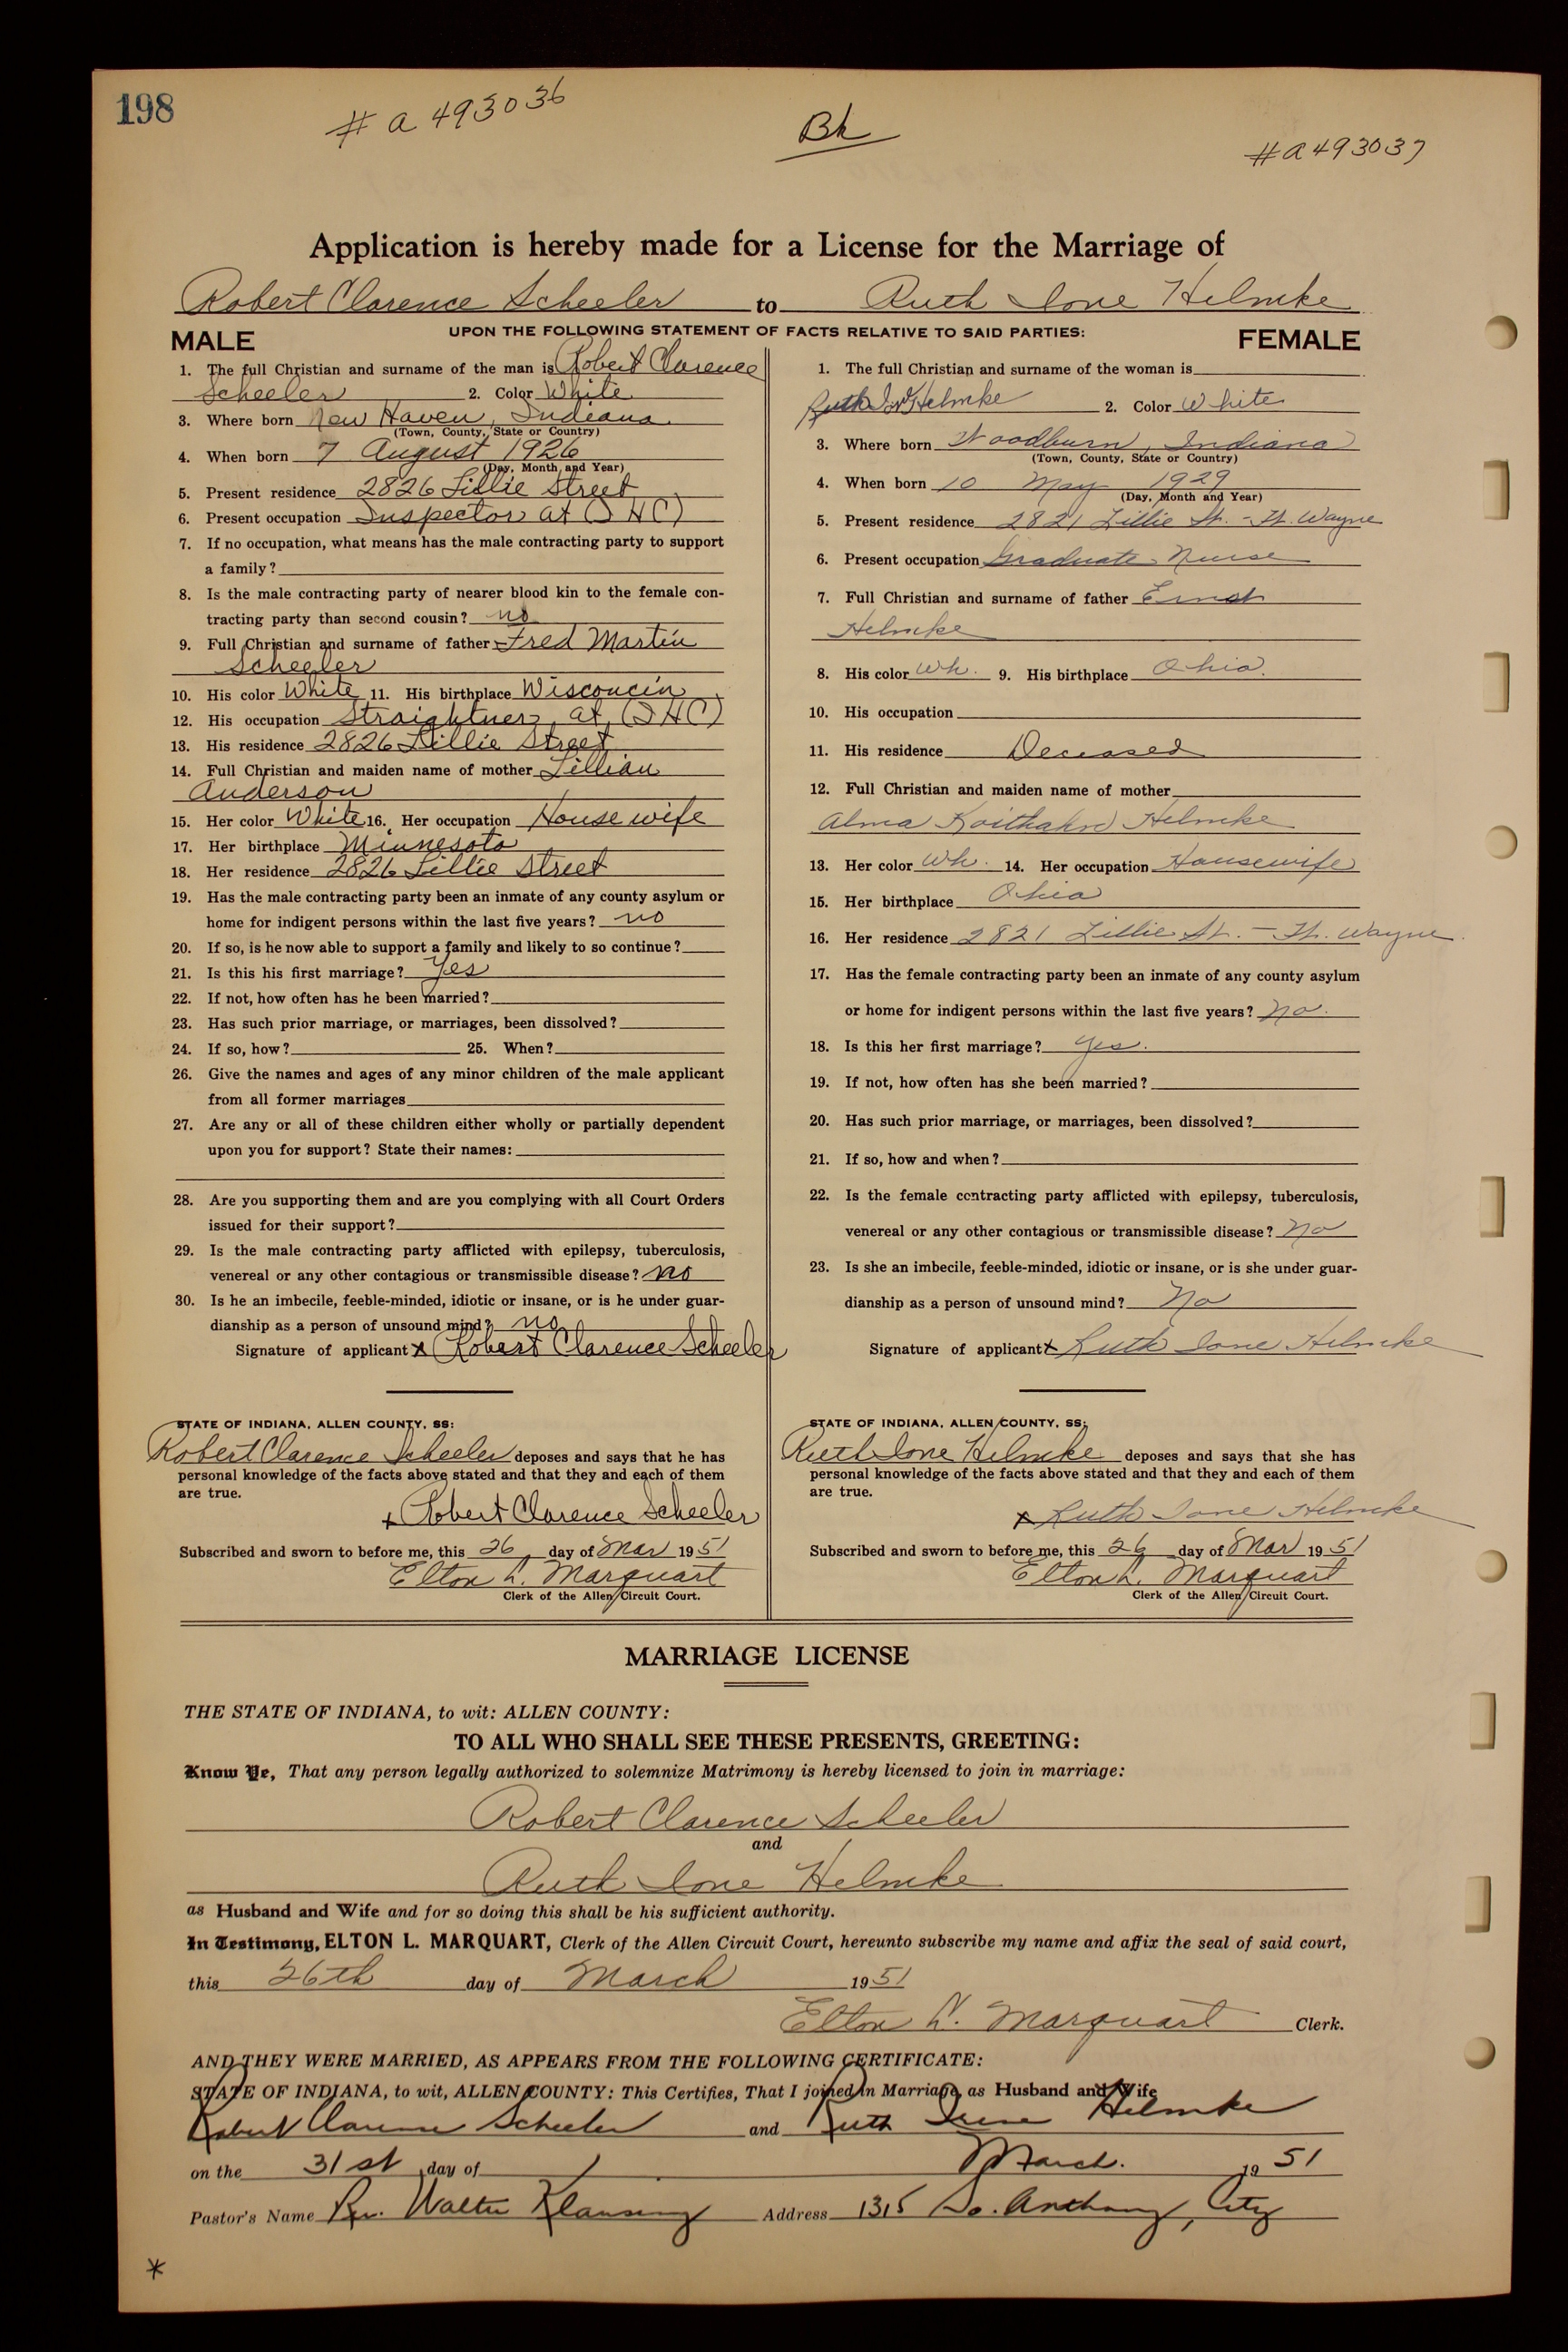 198
# a 493036
Bk
# a 493037
Application is hereby made for a License for the Marriage of
Robert Clarence Scheeler to Ruth Ione Helmke
MALE
UPON THE FOLLOWING STATEMENT OF FACTS RELATIVE TO SAID PARTIES:
FEMALE
1. The full Christian and surname of the man is Robert Clarence
Scheeler 2. Color White
3. Where born New Haven, Indiana
(Town, County, State or Country)
4. When born 7 August 1926
(Day, Month and Year)
5. Present residence 2826 Lillie Street
6. Present occupation Inspector at (I H C)
7. If no occupation, what means has the male contracting party to support
a family?
8. Is the male contracting party of nearer blood kin to the female con-
tracting party than second cousin? no
9. Full Christian and surname of father Fred Martin
Scheeler
10. His color White 11. His birthplace Wisconcin
12. His occupation Straightner at (I H C)
13. His residence 2826 Lillie Street
14. Full Christian and maiden name of mother Lillian
Anderson
15. Her color White 16. Her occupation House wife
17. Her birthplace Minnesota
18. Her residence 2826 Lillie Street
19. Has the male contracting party been an inmate of any county asylum or
home for indigent persons within the last five years? no
20. If so, is he now able to support a family and likely to so continue?
21. Is this his first marriage? Yes
22. If not, how often has he been married?
23. Has such prior marriage, or marriages, been dissolved?
24. If so, how? 25. When?
26. Give the names and ages of any minor children of the male applicant
from all former marriages
27. Are any or all of these children either wholly or partially dependent
upon you for support? State their names:
28. Are you supporting them and are you complying with all Court Orders
issued for their support?
29. Is the male contracting party afflicted with epilepsy, tuberculosis,
venereal or any other contagious or transmissible disease? no
30. Is he an imbecile, feeble-minded, idiotic or insane, or is he under guar-
dianship as a person of unsound mind? no
Signature of applicant x Robert Clarence Scheeler
STATE OF INDIANA, ALLEN COUNTY, SS:
Robert Clarence Scheeler deposes and says that he has
personal knowledge of the facts above stated and that they and each of them
are true.
x Robert Clarence Scheeler
Subscribed and sworn to before me, this 26 day of Mar 1951
Elton L. Marquart
Clerk of the Allen Circuit Court.
1. The full Christian and surname of the woman is
Ruth Helmke 2. Color White
3. Where born Woodburn, Indiana
(Town, County, State or Country)
4. When born 10 May 1929
(Day, Month and Year)
5. Present residence 2821 Lillie St. - Ft. Wayne
6. Present occupation Graduate Nurse
7. Full Christian and surname of father Ernst
Helmke
8. His color Wh. 9. His birthplace Ohio
10. His occupation
11. His residence Deceased
12. Full Christian and maiden name of mother
Alma Koithahn Helmke
13. Her color Wh. 14. Her occupation Housewife
15. Her birthplace Ohio
16. Her residence 2821 Lillie St. - Ft. Wayne
17. Has the female contracting party been an inmate of any county asylum
or home for indigent persons within the last five years? No.
18. Is this her first marriage? Yes.
19. If not, how often has she been married?
20. Has such prior marriage, or marriages, been dissolved?
21. If so, how and when?
22. Is the female contracting party afflicted with epilepsy, tuberculosis,
venereal or any other contagious or transmissible disease? No
23. Is she an imbecile, feeble-minded, idiotic or insane, or is she under guar-
dianship as a person of unsound mind? No
Signature of applicant x Ruth Ione Helmke
STATE OF INDIANA, ALLEN COUNTY, SS:
Ruth Ione Helmke deposes and says that she has
personal knowledge of the facts above stated and that they and each of them
are true.
x Ruth Ione Helmke
Subscribed and sworn to before me, this 26 day of Mar 1951
Elton L. Marquart
Clerk of the Allen Circuit Court.
MARRIAGE LICENSE
THE STATE OF INDIANA, to wit: ALLEN COUNTY:
TO ALL WHO SHALL SEE THESE PRESENTS, GREETING:
Know Ye, That any person legally authorized to solemnize Matrimony is hereby licensed to join in marriage:
Robert Clarence Scheeler
and
Ruth Ione Helmke
as Husband and Wife and for so doing this shall be his sufficient authority.
In Testimony, ELTON L. MARQUART, Clerk of the Allen Circuit Court, hereunto subscribe my name and affix the seal of said court,
this 26th day of March 1951
Elton L. Marquart Clerk.
AND THEY WERE MARRIED, AS APPEARS FROM THE FOLLOWING CERTIFICATE:
STATE OF INDIANA, to wit, ALLEN COUNTY: This Certifies, That I joined in Marriage as Husband and Wife
Robert Clarence Scheeler and Ruth Irene Helmke
on the 31st day of March. 1951
Pastor's Name Rev. Walter Klausing Address 1315 So. Anthony, City
*